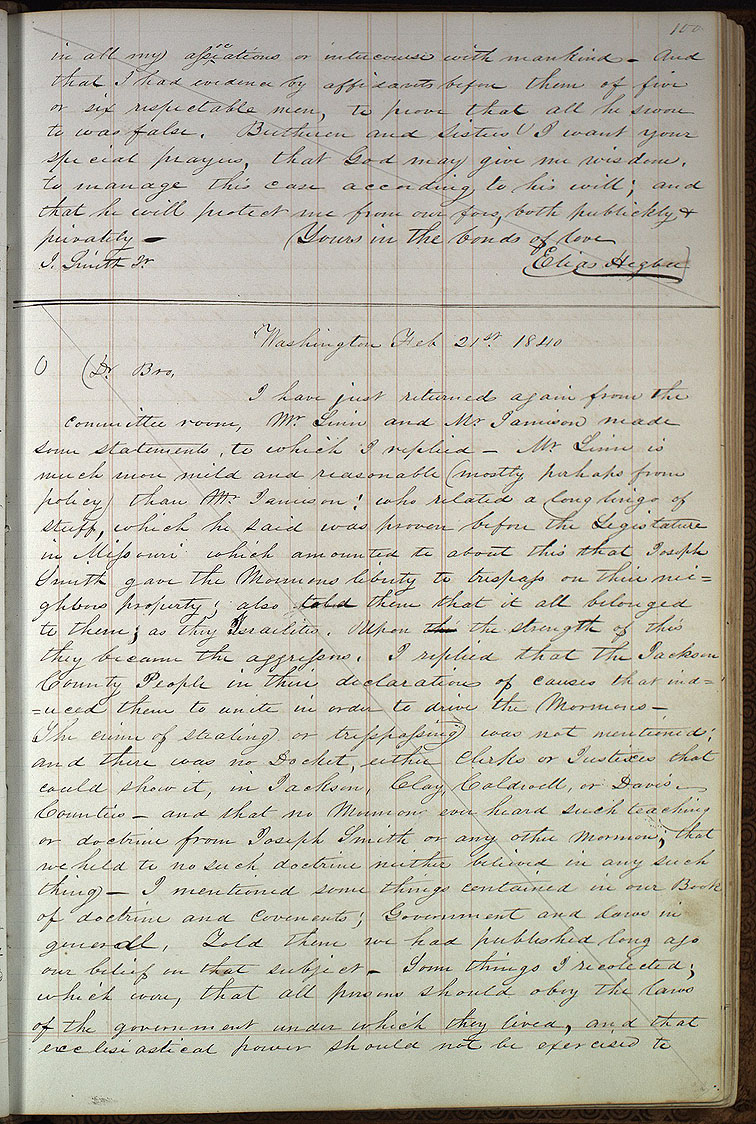 100
in all my assoiations or intercourse with mankind – And
that I had evidence by affidavits before them of five
or six respectable men, to prove that all he swore
to was false. Bretheren and Sisters I want your
special prayers, that God may give me wisdom,
to manage this case according to his will; and
that he will protect me from our foes, both publickly &
privately – Yours in the bonds of love
J. Smith Jr. Elias Higbee
Washington Feb 21st. 1840
O Dr. Bro,
I have just returned again from the
committee room, Mr. Linn and Mr Jamison made
some statements, to which I replied – Mr. Linn is
much more mild and reasonable (mostly perhaps from
policy) than Mr Jamison: who related a long lingo of
stuff, which he said was proven before the Legislature
in Missouri which amounted to about this that Joseph
Smith gave the Mormons liberty to trespass on their nei=
ghbors property; also told them that it all belonged
to them; as they Israelites. Upon the the strength of this
they became the aggressors. I replied that the Jackson
County People in their declaration of causes that ind=
=uced them to unite in order to drive the Mormons –
The crime of stealing or trespassing was not mentioned;
and there was no Docket, either Clerks or Justices that
could show it, in Jackson, Clay, Caldwell, or Davis
Counties – and that no Mormon ever heard such teaching
or doctrine from Joseph Smith or any other Mormon; that
we held to no such doctrine neither believed in any such
thing – I mentioned some things contained in our Book
of doctrine and Covenents; Government and laws in
generall, Told them we had published long ago
our belief on that subject – Some things I recolected;
which were, that all persons should obey the laws
of the government under which they lived, and that
ecclesiastical power should not be exercised to